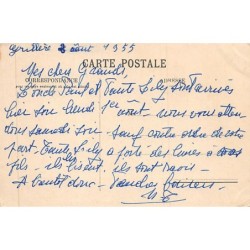 2 août 1955
CARTE POSTALE
CORRESPONDANCE ADRESSE
Mes chers Grands,
Oncle et Tante Lily sont arrivés
hier soir lundi nous vous atten
dons samedi soir sauf contre ordre de votre
part. Tante Lily a porté des livres à
fils ils lisent. Ils sont ravis
A bientôt donc tendres